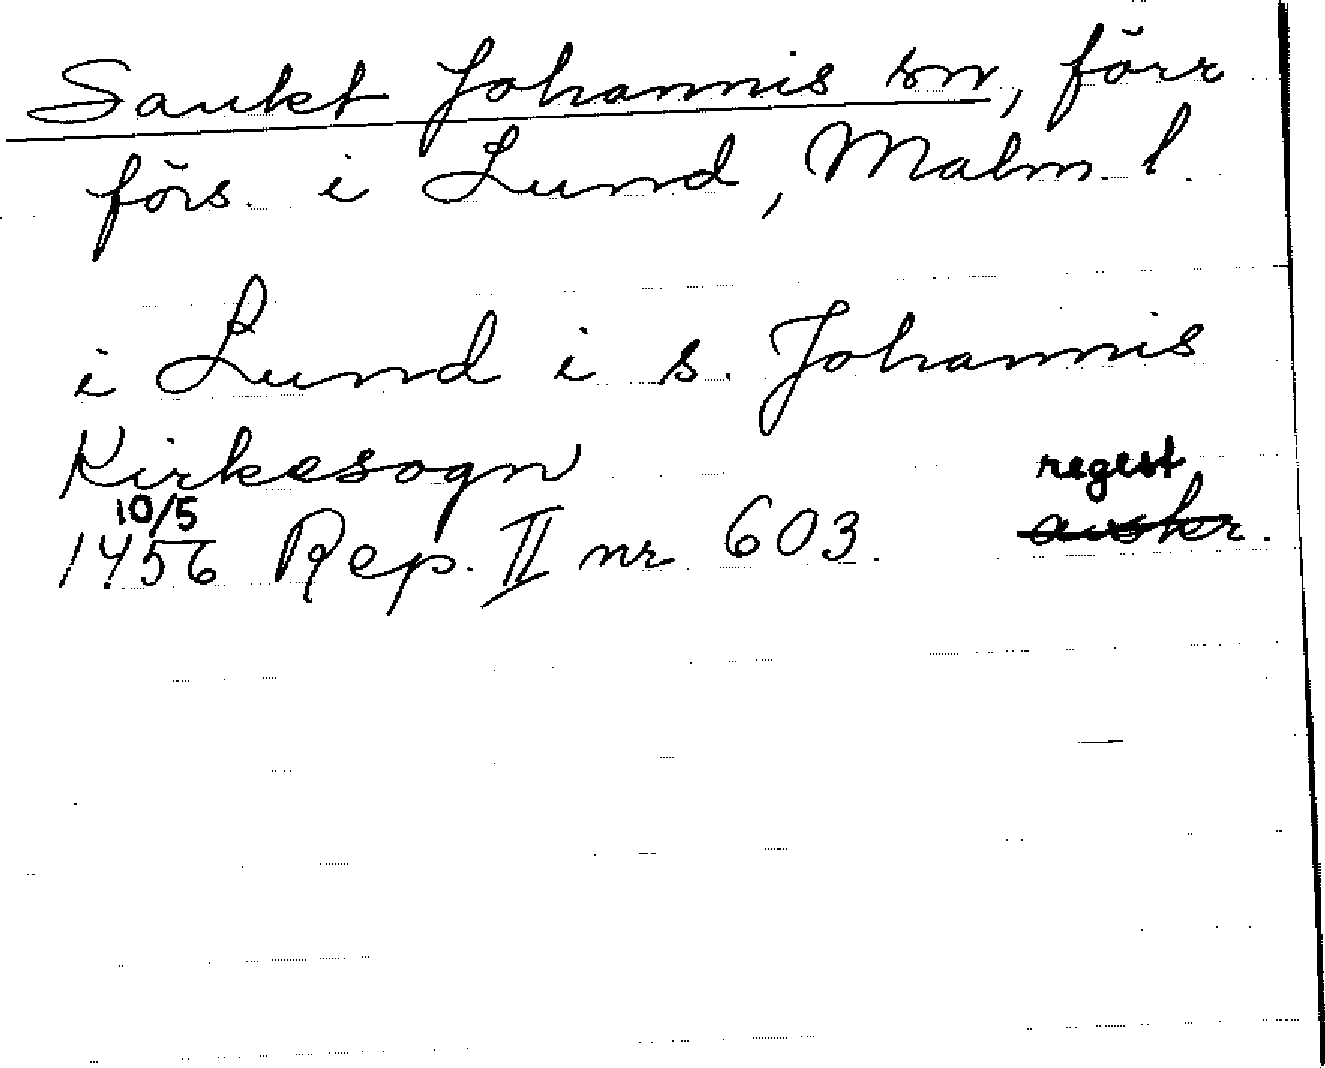 Sankt Johannis sn, förr
förs. i Lund, Malm. l.
i Lund i s. Johannis
Kirkesogn
10/5 regest
1456 Rep. II nr 603. avskr.